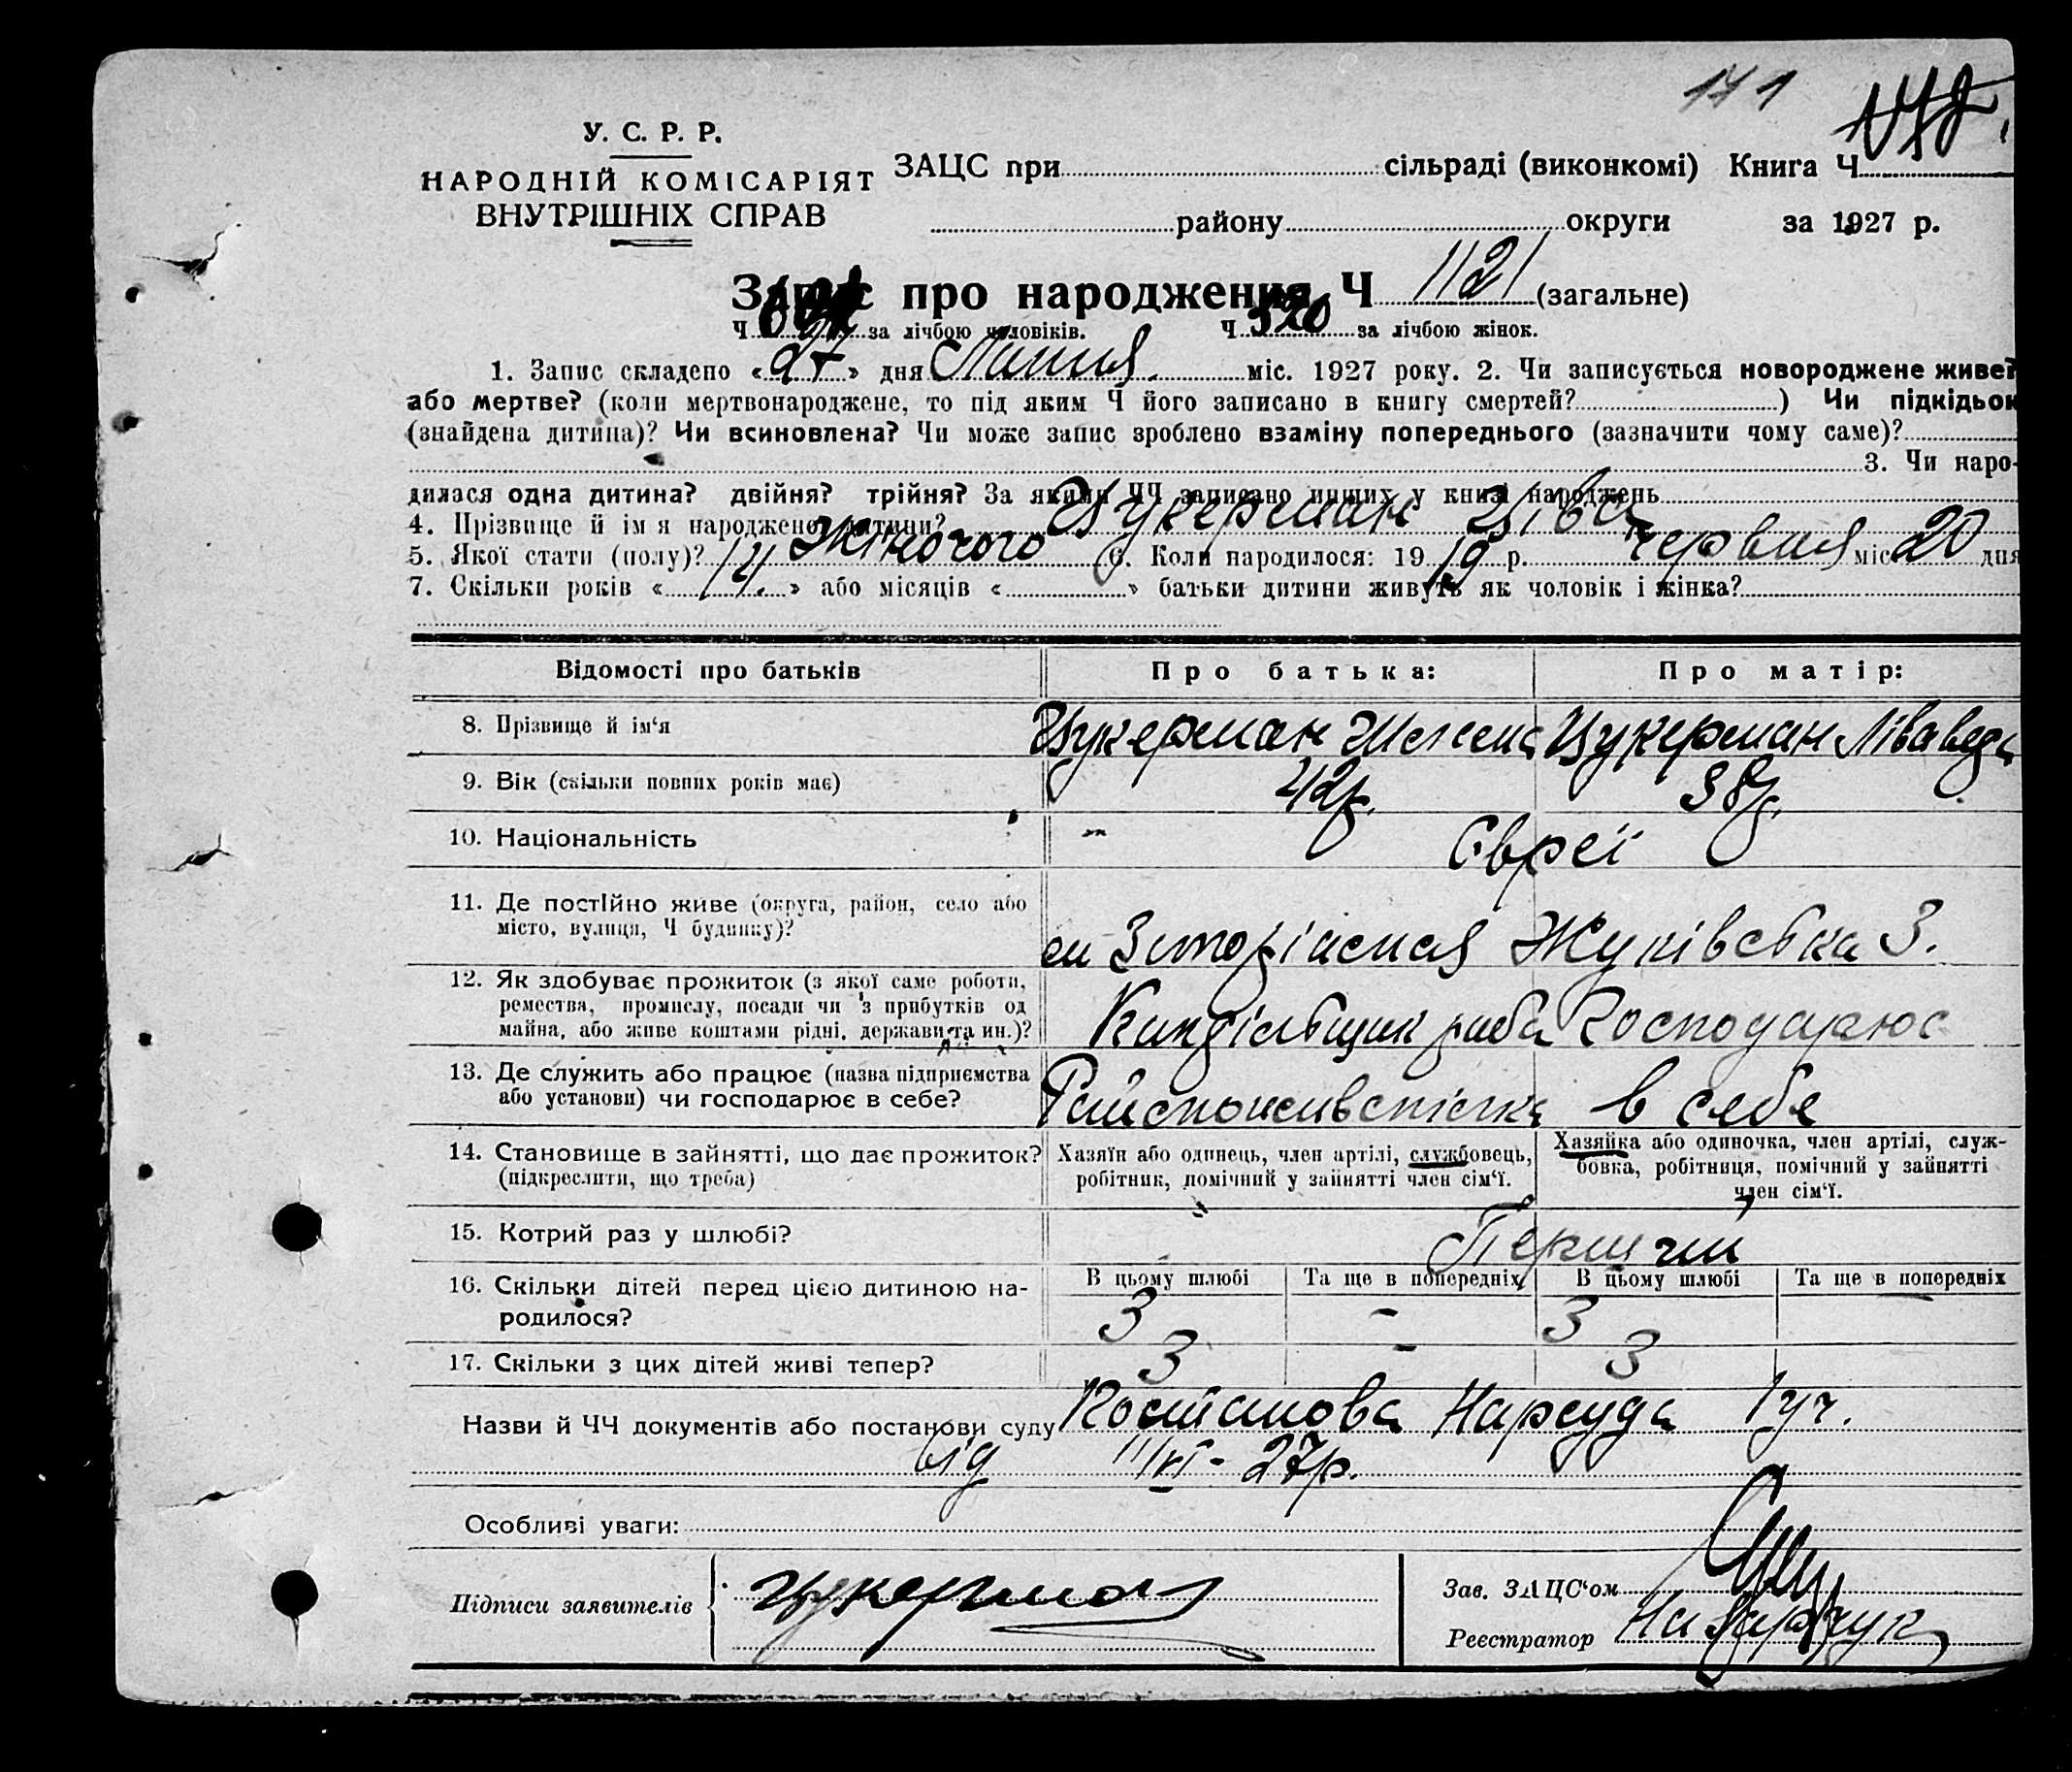 171
У. С. Р. Р.
НАРОДНІЙ КОМІСАРІЯТ
ВНУТРІШНІХ СПРАВ
ЗАЦС при сільраді (виконкомі) Книга Ч
району округи за 1927 р.
Запис про народження Ч 1121 (загальне)
Ч за лічбою чоловіків. Ч 520 за лічбою жінок.
1. Запис складено « 27 » дня Липня міс. 1927 року. 2. Чи записується новороджене живе?
або мертве? (коли мертвонароджене, то під яким Ч його записано в книгу смертей? ) Чи підкідьок
(знайдена дитина)? Чи всиновлена? Чи може запис зроблено взаміну попереднього (зазначити чому саме)?
3. Чи наро-
дилася одна дитина? двійня? трійня? За якими ЧЧ записано инших у книзі народжень
4. Прізвище й ім'я народженої дитини? Цукерман Ціва
5. Якої стати (полу)? Жіночого 6. Коли народилося: 19 19 р. червня міс 20 дня
7. Скільки років « 14. » або місяців « » батьки дитини живуть як чоловік і жінка?
Відомості про батьків Про батька: Про матір:
8. Прізвище й ім'я Цукерман Цукерман
9. Вік (скільки повних років має) 42р. 38р.
10. Національність Євреї
11. Де постійно живе (округа, район, село або
місто, вулиця, Ч будинку)?
Жуківська 3.
12. Як здобуває прожиток (з якої саме роботи,
ремества, промислу, посади чи з прибутків од
майна, або живе коштами рідні, держави та ин.)?
13. Де служить або працює (назва підприємства
або установи) чи господарює в себе?
в себе
14. Становище в зайнятті, що дає прожиток?
(підкреслити, що треба)
Хазяїн або одинець, член артілі, службовець,
робітник, помічний у зайнятті член сім'ї.
Хазяйка або одиночка, член артілі, служ-
бовка, робітниця, помічний у зайнятті
член сім'ї.
15. Котрий раз у шлюбі? Перший
16. Скільки дітей перед цією дитиною на-
родилося?
В цьому шлюбі Та ще в попередніх В цьому шлюбі Та ще в попередніх
3 - 3 -
17. Скільки з цих дітей живі тепер? 3 - 3
Назви й ЧЧ документів або постанови суду Постанова Нарсуда 1 уч.
від 11/VI - 27р.
Особливі уваги:
Підписи заявителів Цукерман
Зав. ЗАЦС'ом
Реєстратор